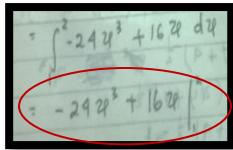 = ∫² -24y³ + 16y dy
= -24y³ + 16y |